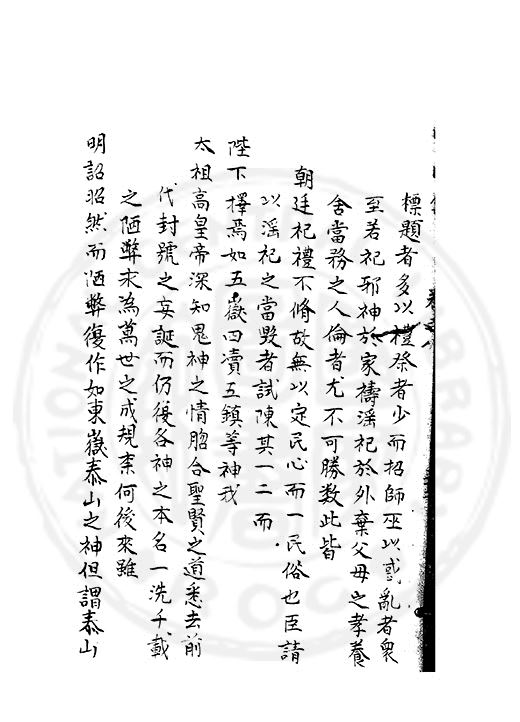 標題者多以禮祭者少而招師巫以惑亂者衆
至若祀邪神於家禱淫祀於外棄父母之孝養
舍當務之人倫者尤不可勝数此皆
朝廷祀禮不脩故無以定民心而一民俗也臣請
以淫祀之當毀者試陳其一二而
陛下擇焉如五嶽四瀆五鎮等神我
太祖高皇帝深知鬼神之情脗合聖賢之道悉去前
代封號之妄誕而仍復各神之本名一洗千載
之陋弊永為萬世之成規柰何後來雖
明詔昭然而陋弊復作如東嶽泰山之神但謂泰山